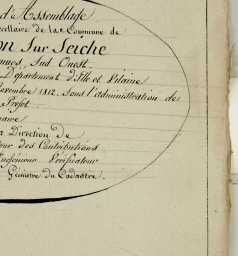 d'Assemblage
cellaire de la Commune de
on Sur Seiche
nnes, Sud Ouest.
Département d'Ille et Vilaine
ovembre 1812. Sous l'administration de
Préfet.
maire
a Direction de
eur des Contributions
Ingénieur Vérificateur
Géomètre du Cadastre.